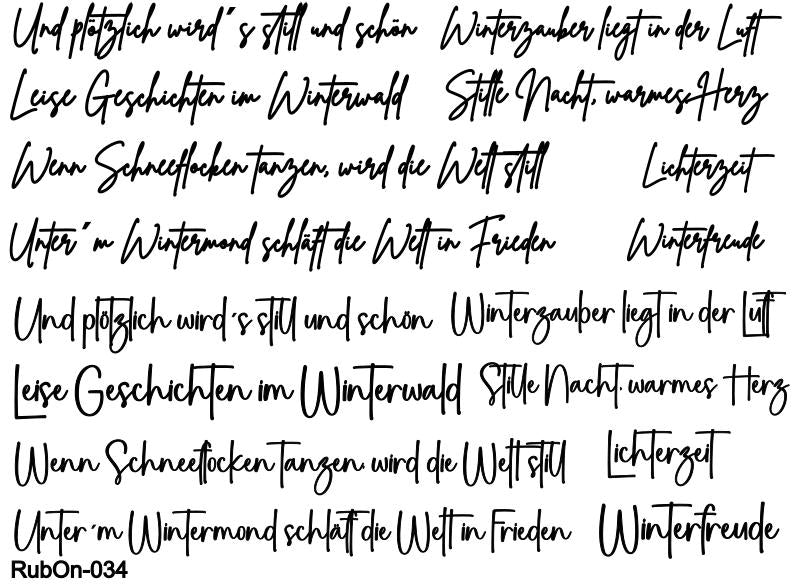 Und plötzlich wird´s still und schön Winterzauber liegt in der Luft
Leise Geschichten im Winterwald Stille Nacht, warmes Herz
Wenn Schneeflocken tanzen, wird die Welt still Lichterzeit
Unter´m Wintermond schläft die Welt in Frieden Winterfreude
Und plötzlich wird´s still und schön Winterzauber liegt in der Luft
Leise Geschichten im Winterwald Stille Nacht, warmes Herz
Wenn Schneeflocken tanzen, wird die Welt still Lichterzeit
Unter´m Wintermond schläft die Welt in Frieden Winterfreude
RubOn-034